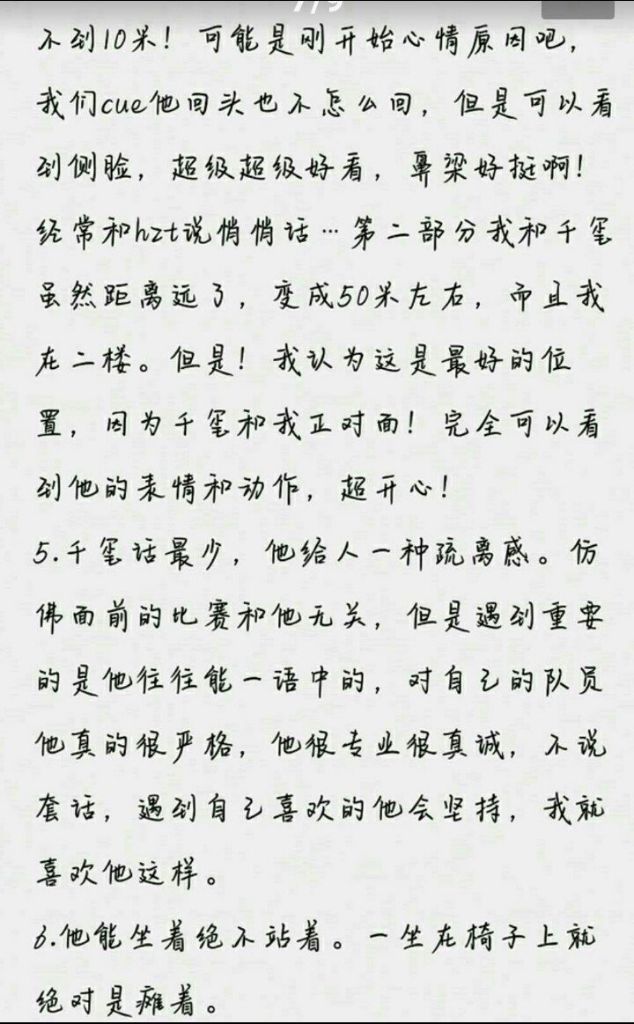 7/9
不到10米！可能是刚开始心情原因吧，
我们cue他回头也不怎么回，但是可以看
到侧脸，超级超级好看，鼻梁好挺啊！
经常和hzt说悄悄话…第二部分我和千玺
虽然距离远了，变成50米左右，而且我
在二楼。但是！我认为这是最好的位
置，因为千玺和我正对面！完全可以看
到他的表情和动作，超开心！
5.千玺话最少，他给人一种疏离感。仿
佛面前的比赛和他无关，但是遇到重要
的是他往往能一语中的，对自己的队员
他真的很严格，他很专业很真诚，不说
套话，遇到自己喜欢的他会坚持，我就
喜欢他这样。
6.他能坐着绝不站着。一坐在椅子上就
绝对是瘫着。